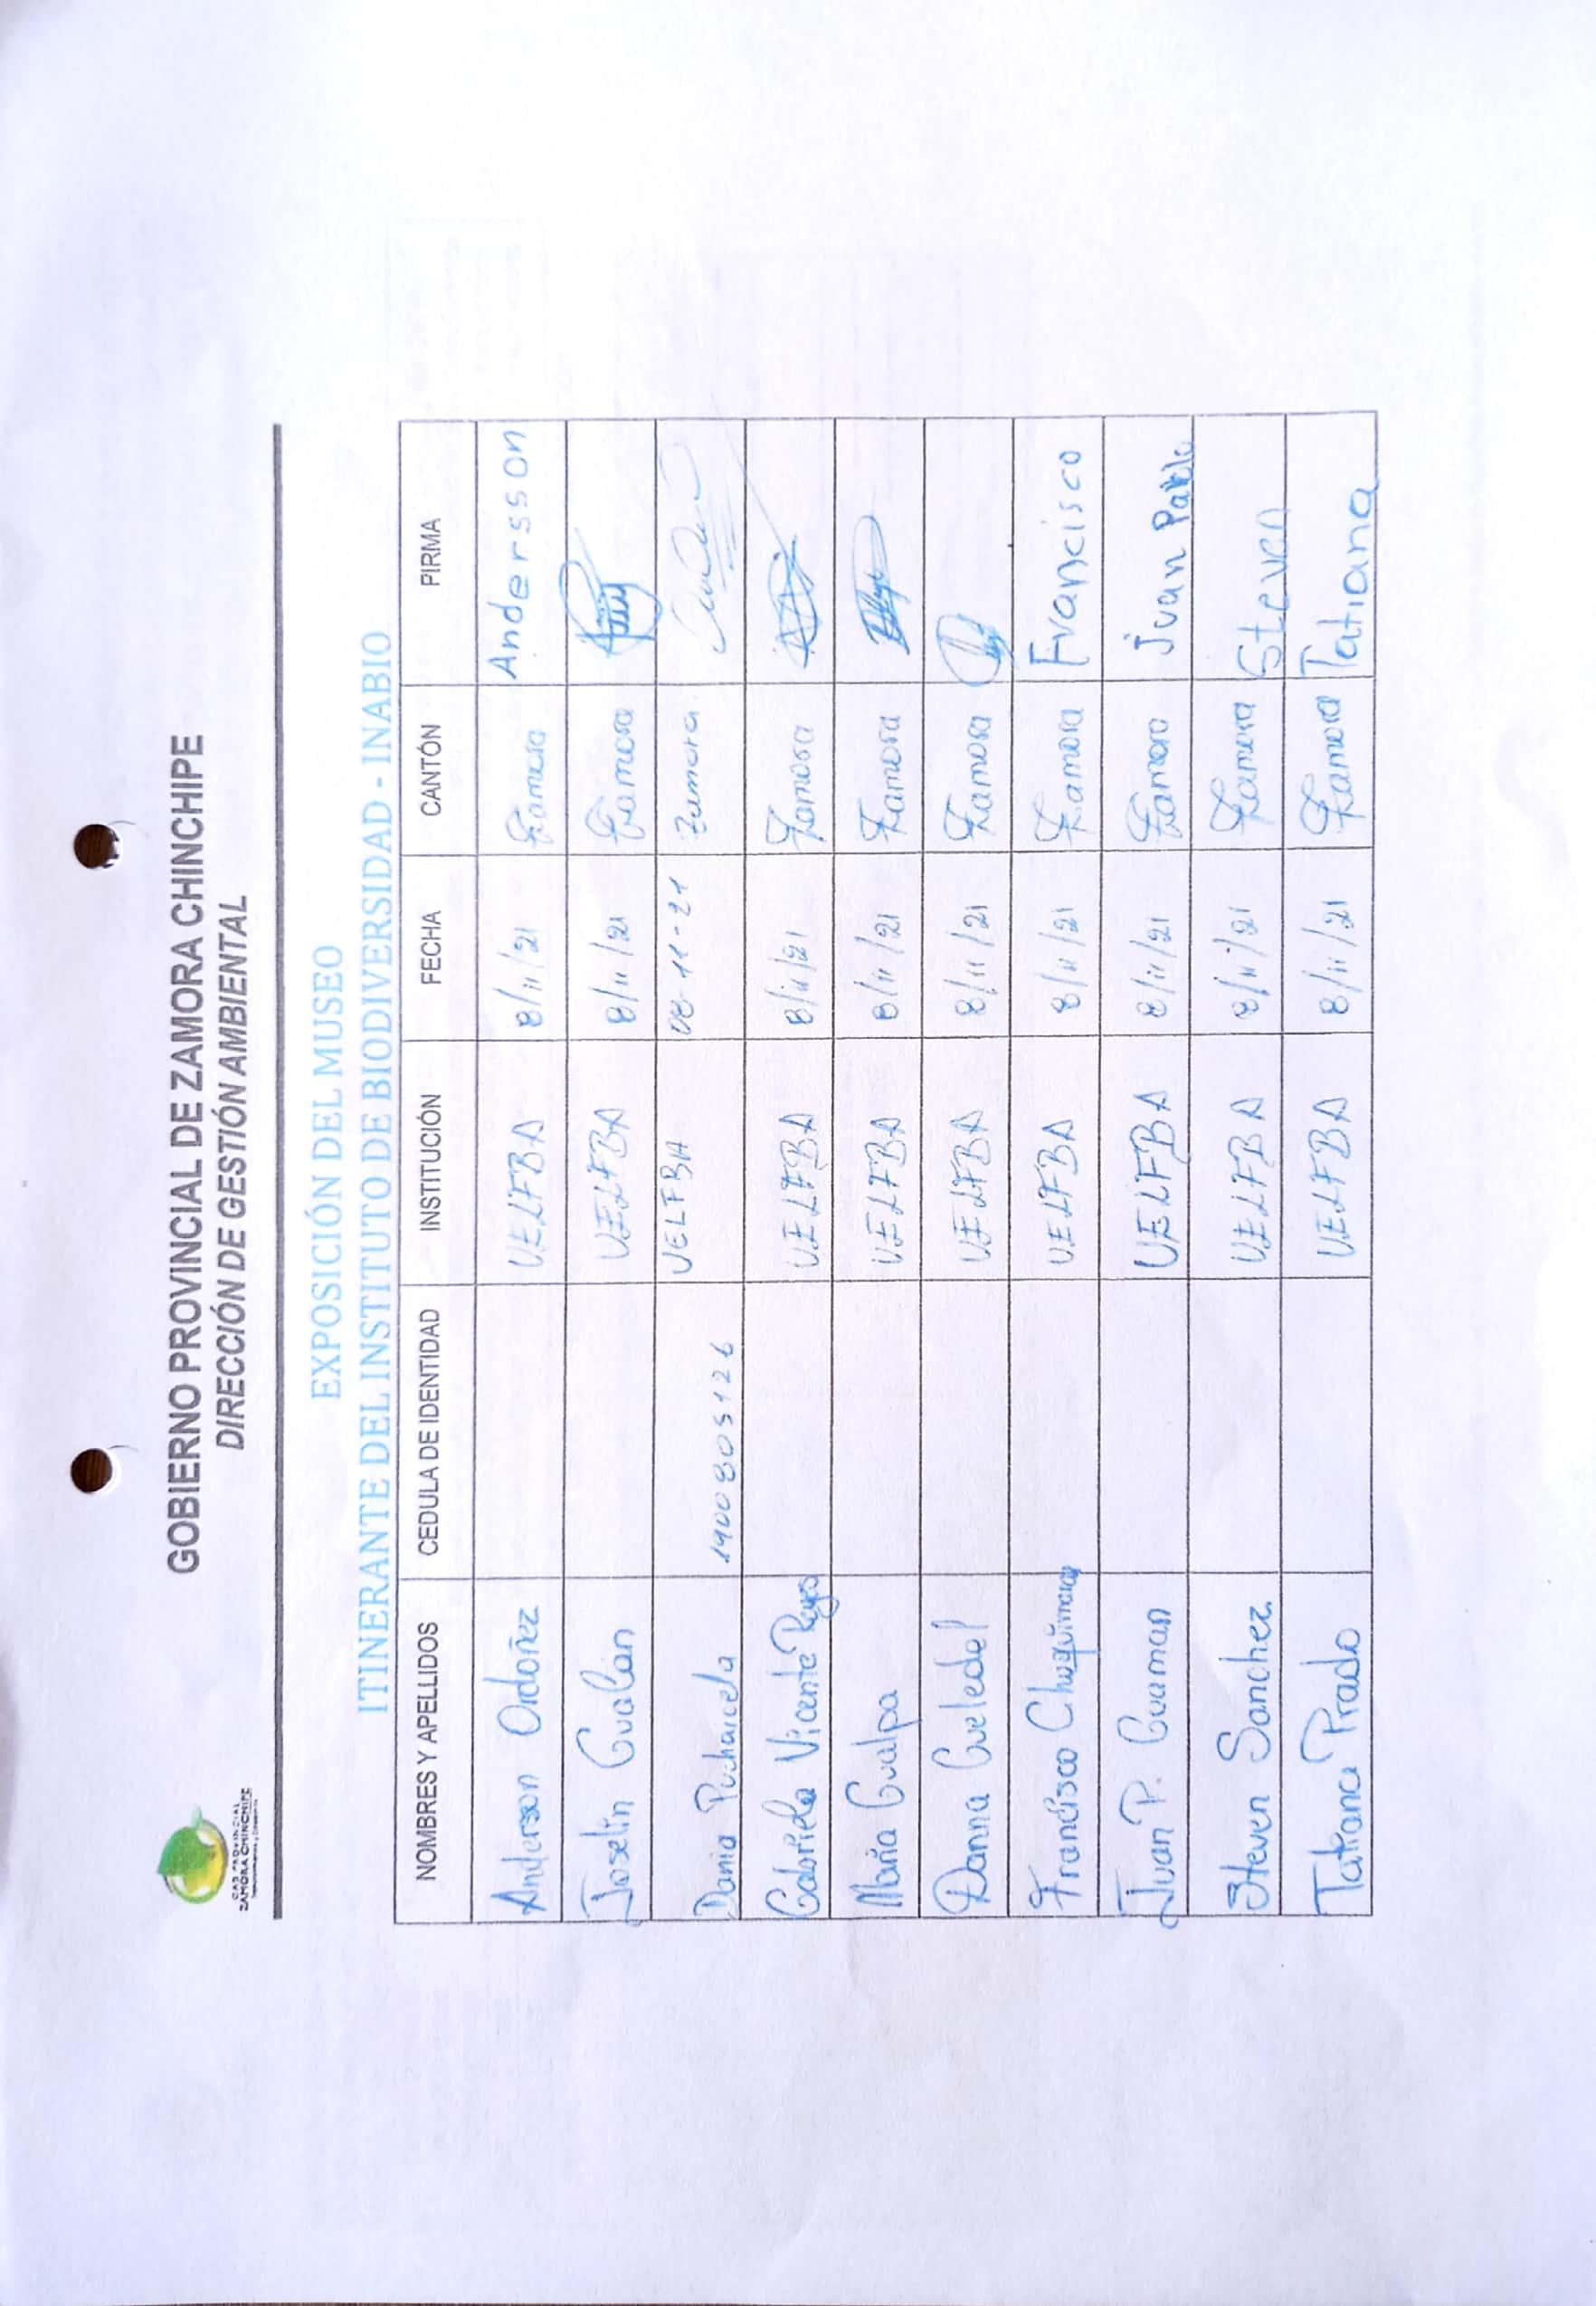 GAD PROVINCIAL
ZAMORA CHINCHIPE
GOBIERNO PROVINCIAL DE ZAMORA CHINCHIPE
DIRECCIÓN DE GESTIÓN AMBIENTAL
EXPOSICIÓN DEL MUSEO
ITINERANTE DEL INSTITUTO DE BIODIVERSIDAD - INABIO
NOMBRES Y APELLIDOS CEDULA DE IDENTIDAD INSTITUCIÓN FECHA CANTÓN PIRMA
Anderson Ordoñez UELFBA 8/11/21 Zamora Andersson
Joselin Gualan UELFBA 8/11/21 Zamora
Dania 1900805126 UELFBA 08-11-21 Zamora
Gabriela Vicente UELFBA 8/11/21 Zamora
María Gualpa UELFBA 8/11/21 Zamora
Danna Gueledel UELFBA 8/11/21 Zamora
Francisco UELFBA 8/11/21 Zamora Francisco
Juan P. Guaman UELFBA 8/11/21 Zamora Juan Pablo
Steven Sanchez UELFBA 8/11/21 Zamora Steven
Tatiana Prado UELFBA 8/11/21 Zamora Tatiana